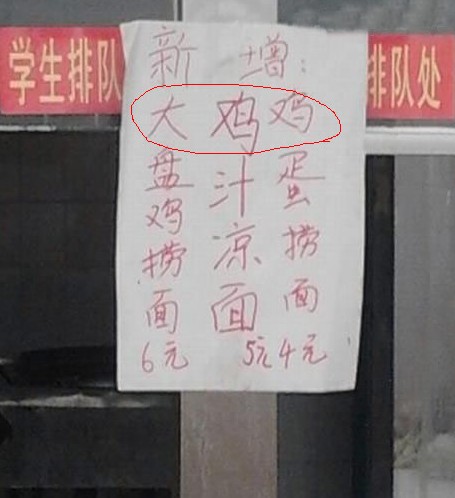 学生排队
排队处
新增：
大盘鸡捞面
6元
鸡汁凉面
5元
鸡蛋捞面
4元